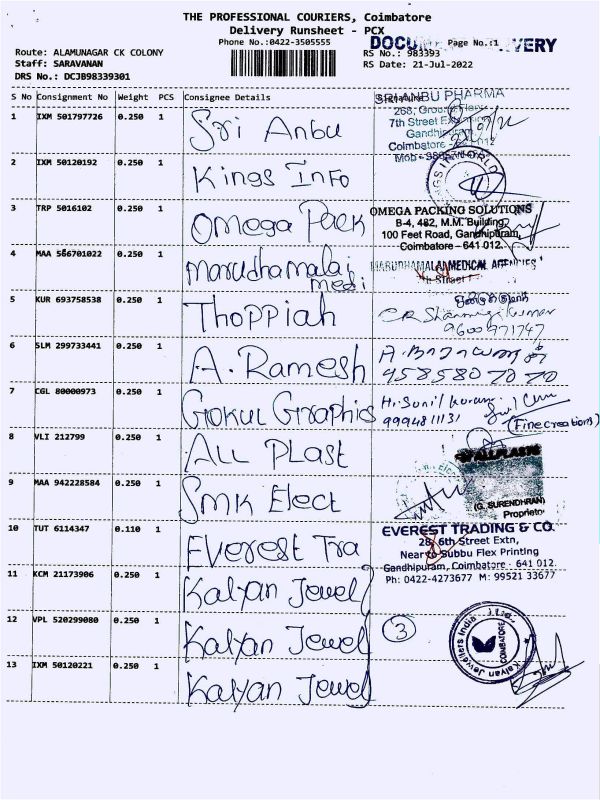 THE PROFESSIONAL COURIERS, Coimbatore
Delivery Runsheet - PCX
Phone No.:0422-3505555
Page No.:1
Route: ALAMUNAGAR CK COLONY
RS No.: 983393
Staff: SARAVANAN
RS Date: 21-Jul-2022
DRS No.: DCJB98339301
S No Consignment No Weight PCS Consignee Details
1 IXM 501797726 0.250 1 Sri Anbu
SRI ANBU PHARMA
7th Street
Gandhipuram
Coimbatore
2 IXM 50120192 0.250 1 Kings Info
3 TRP 5016102 0.250 1 Omega Pack
OMEGA PACKING SOLUTIONS
B-4, 482, M.M. Building,
100 Feet Road, Gandhipuram,
Coimbatore - 641 012.
4 MAA 586701022 0.250 1 Marudhamalai Medi
MARUDHAMALAI MEDICAL AGENCIES
5 KUR 693758538 0.250 1 Thoppiah
9600971747
6 SLM 299733441 0.250 1 A. Ramesh
7 CGL 80000973 0.250 1 Gokul Graphics
9994811131
(Fine creations)
8 VLI 212799 0.250 1 ALL PLast
ALLPLASTS
(G. SURENDHRAN)
Proprietor
9 MAA 942228584 0.250 1 SMK Elect
10 TUT 6114347 0.110 1 Everest Tra
EVEREST TRADING & CO.
28, 6th Street Extn,
Near to Subbu Flex Printing
Gandhipuram, Coimbatore - 641 012.
Ph: 0422-4273677 M: 99521 33677
11 KCM 21173906 0.250 1 Kalyan Jewel
12 VPL 520299080 0.250 1 Kalyan Jewel
3
Kalyan Jewellers India Ltd.
COIMBATORE
13 IXM 50120221 0.250 1 Kalyan Jewel